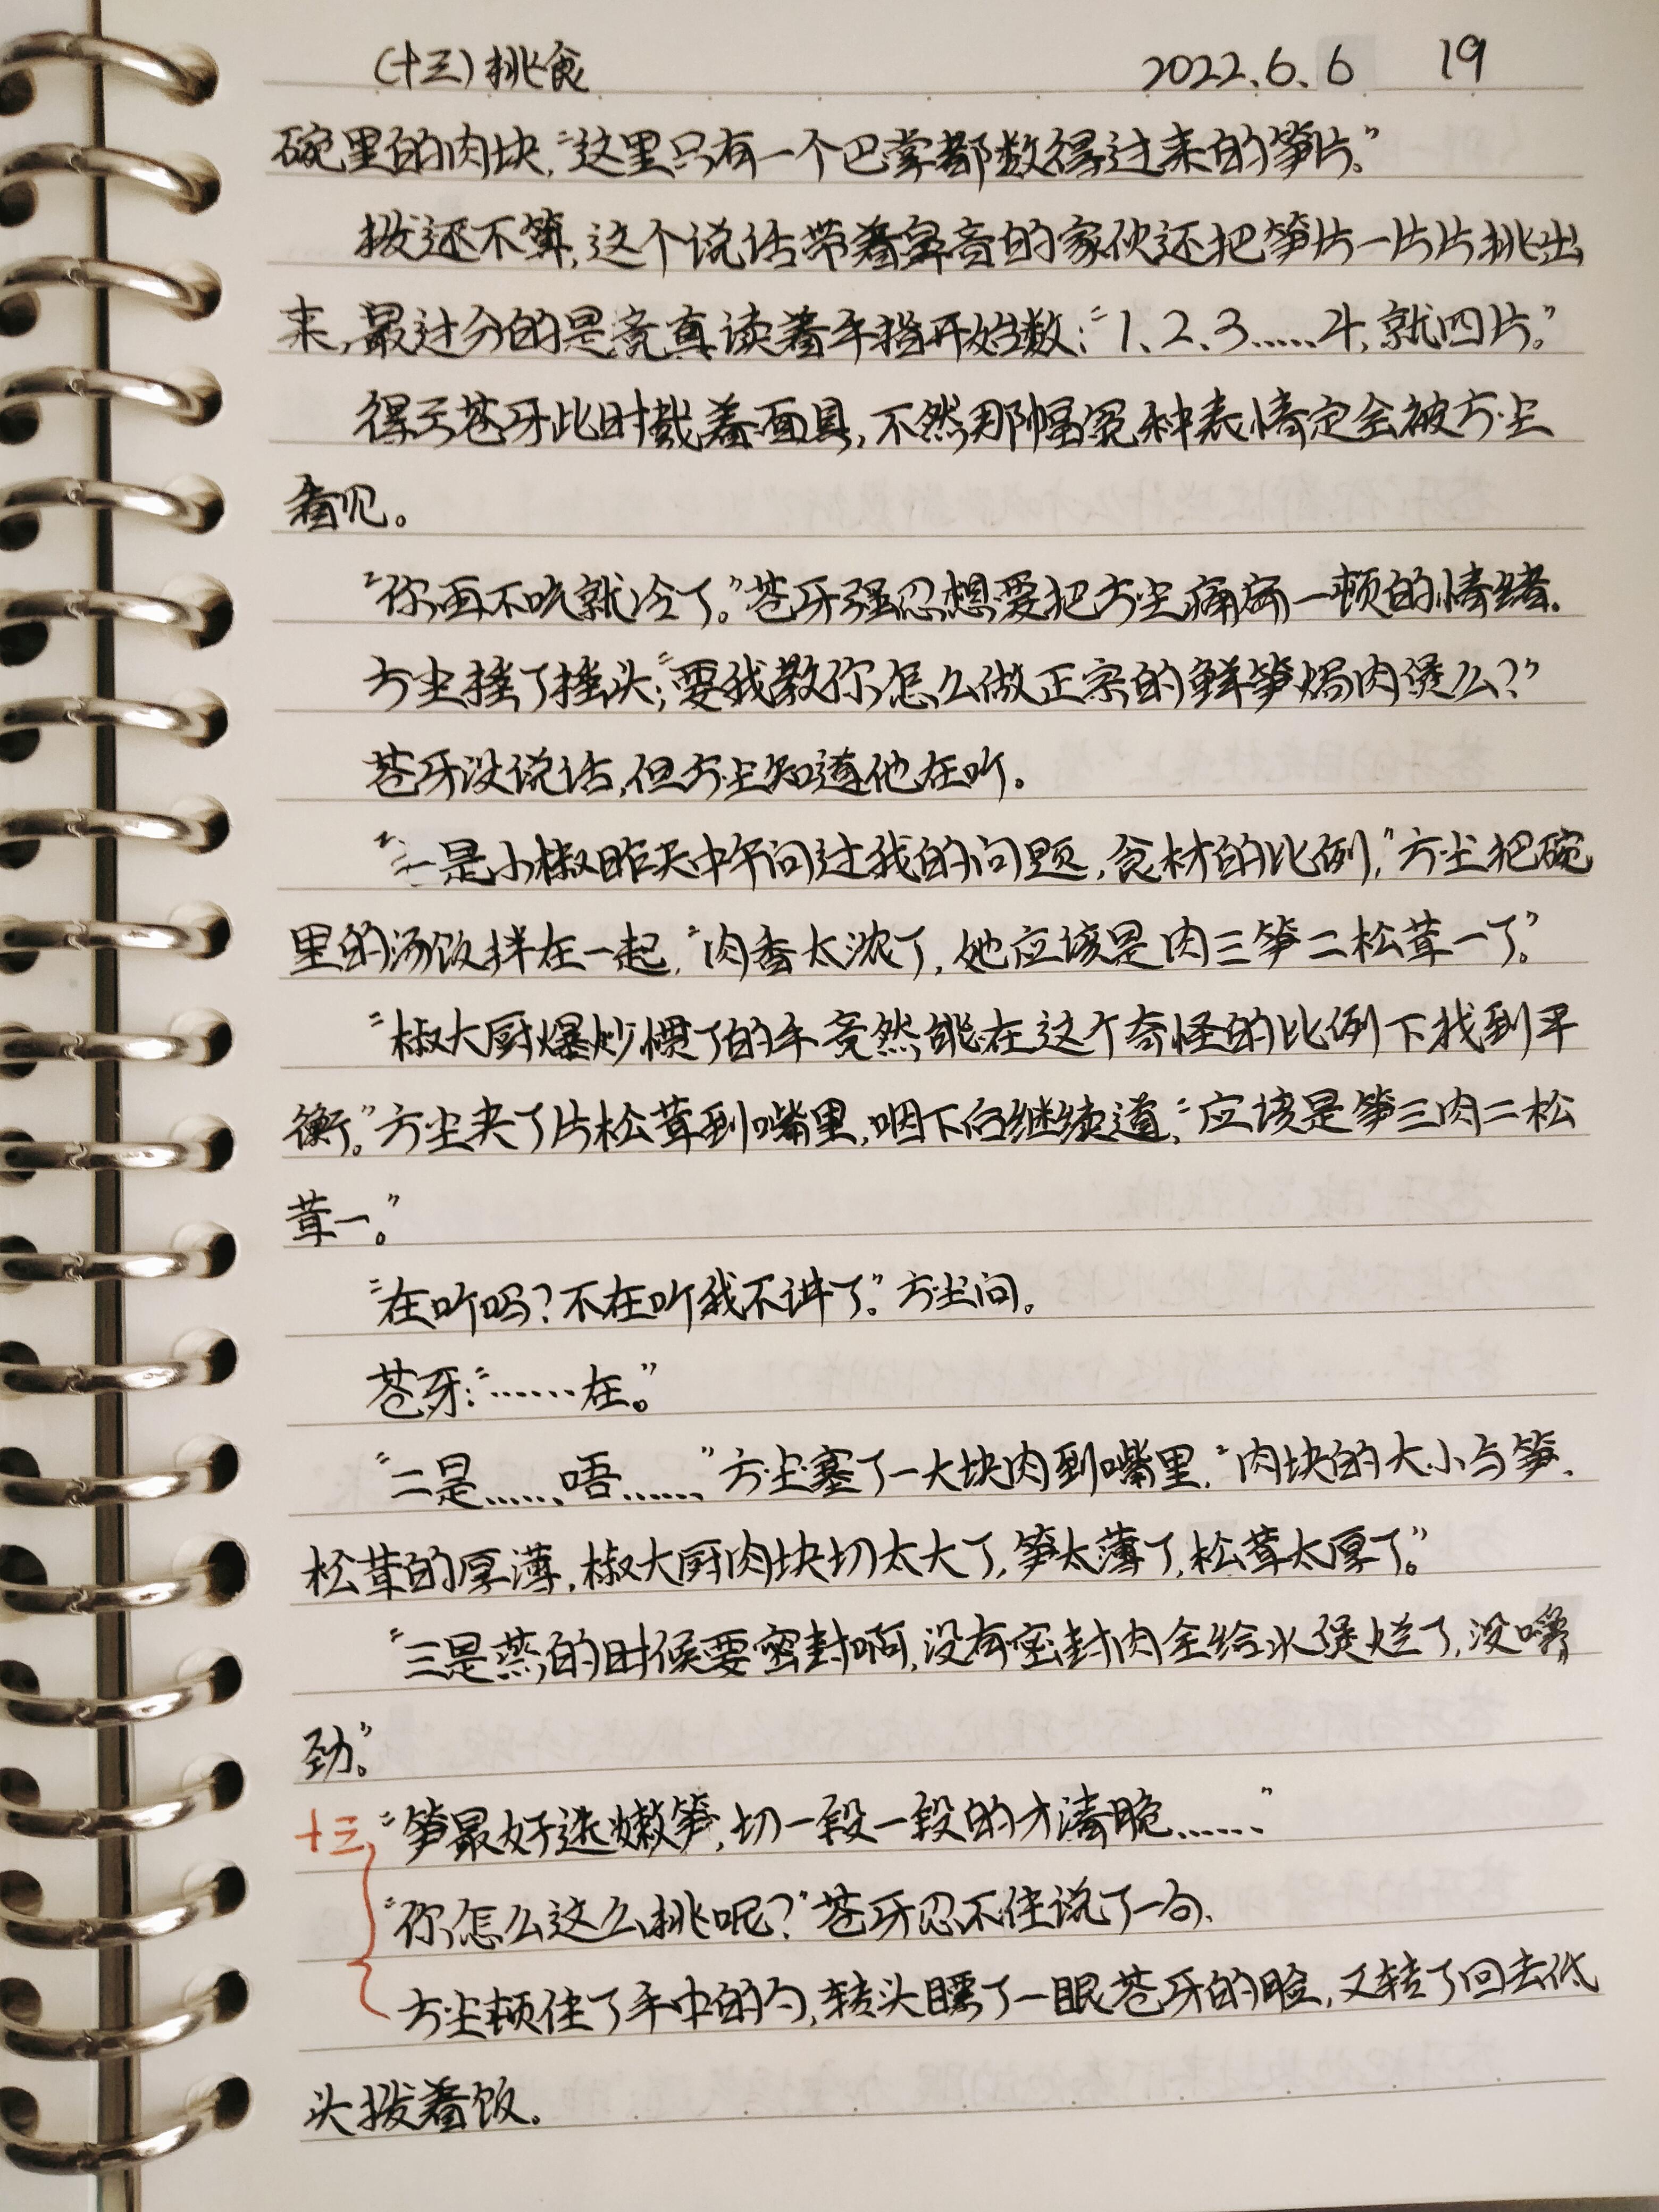 (十三)挑食 2022.6.6 19
碗里的肉块,“这里只有一个巴掌都数得过来的笋片。”
拨还不算,这个说话带着鼻音的家伙还把笋片一片片挑出
来,最过分的是竟真读着手指开始数:“1、2、3……4,就四片。”
得亏苍牙此时戴着面具,不然那幅冤种表情定会被方尘
看见。
“你再不吃就冷了。”苍牙强忍想要把方尘痛扁一顿的情绪.
方尘摇了摇头:“要我教你怎么做正宗的鲜笋焗肉煲么?”
苍牙没说话,但方尘知道他在听。
“一是小椒昨天中午问过我的问题,食材的比例,”方尘把碗
里的汤饭拌在一起,“肉香太浓了,她应该是肉三笋二松茸一了。”
“椒大厨爆炒惯了的手竟然能在这个奇怪的比例下找到平
衡。”方尘夹了片松茸到嘴里,咽下后继续道,“应该是笋三肉二松
茸一。”
“在听吗?不在听我不讲了。”方尘问。
苍牙:“……在。”
“二是……唔……”方尘塞了一大块肉到嘴里,“肉块的大小与笋、
松茸的厚薄,椒大厨肉块切太大了,笋太薄了,松茸太厚了。”
“三是蒸的时候要密封啊,没有密封肉全给水煲烂了,没嚼
劲。”
十三 “笋最好选嫩笋,切一段一段的才清脆……”
“你怎么这么挑呢?”苍牙忍不住说了一句.
方尘顿住了手中的勺,转头瞟了一眼苍牙的脸,又转了回去低
头拨着饭。